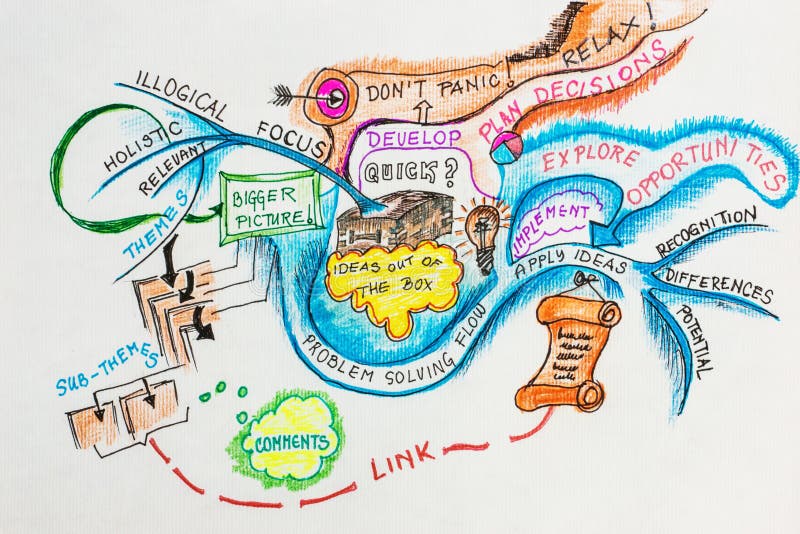 RELAX!
DON'T PANIC!
PLAN DECISIONS
ILLOGICAL
HOLISTIC
RELEVANT
THEMES
FOCUS
DEVELOP
QUICK?
EXPLORE
OPPORTUNITIES
BIGGER
PICTURE!
IMPLEMENT
IDEAS OUT OF
THE BOX
APPLY IDEAS
RECOGNITION
DIFFERENCES
POTENTIAL
PROBLEM SOLVING FLOW
SUB-THEMES
COMMENTS
LINK